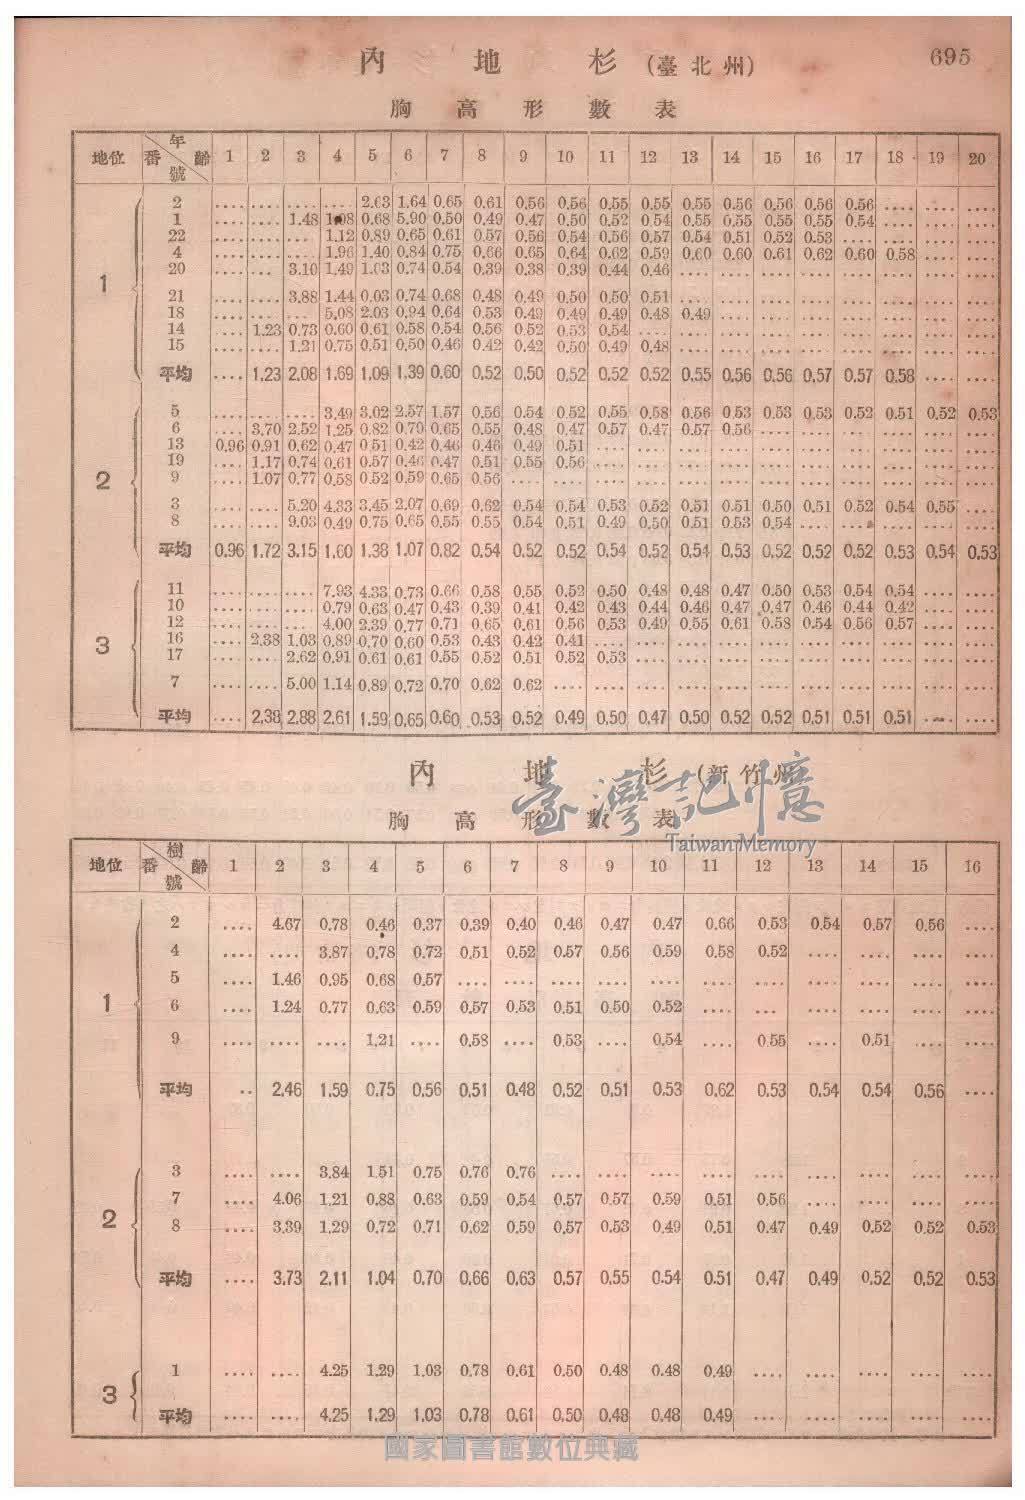 695
內地杉(臺北州)
胸高形數表
地位 番號 年齡 1 2 3 4 5 6 7 8 9 10 11 12 13 14 15 16 17 18 19 20
1
2 .... .... .... .... 2.63 1.64 0.65 0.61 0.56 0.56 0.55 0.55 0.55 0.56 0.56 0.56 0.56 .... .... ....
1 .... .... 1.48 0.68 5.90 0.50 0.49 0.47 0.50 0.52 0.54 0.55 0.55 0.55 0.55 0.54 .... .... ....
22 .... .... .... 1.12 0.89 0.65 0.61 0.57 0.56 0.54 0.56 0.57 0.54 0.51 0.52 0.53 .... .... .... ....
4 .... .... .... 1.96 1.40 0.84 0.75 0.66 0.65 0.64 0.62 0.59 0.60 0.60 0.61 0.62 0.60 0.58 .... ....
20 .... .... 3.10 1.49 1.03 0.74 0.54 0.39 0.38 0.39 0.44 0.46 .... .... .... .... .... .... .... ....
21 .... .... 3.88 1.44 0.03 0.74 0.68 0.48 0.49 0.50 0.50 0.51 .... .... .... .... .... .... .... ....
18 .... .... .... 5.08 2.03 0.94 0.64 0.53 0.49 0.49 0.49 0.48 0.49 .... .... .... .... .... .... ....
14 .... 1.23 0.73 0.60 0.61 0.58 0.54 0.56 0.52 0.53 0.54 .... .... .... .... .... .... .... .... ....
15 .... .... 1.21 0.75 0.51 0.50 0.46 0.42 0.42 0.50 0.49 0.48 .... .... .... .... .... .... .... ....
平均 .... 1.23 2.08 1.69 1.09 1.39 0.60 0.52 0.50 0.52 0.52 0.52 0.55 0.56 0.56 0.57 0.57 0.58 .... ....
2
5 .... .... .... 3.49 3.02 2.57 1.57 0.56 0.54 0.52 0.55 0.58 0.56 0.53 0.53 0.53 0.52 0.51 0.52 0.53
6 .... 3.70 2.52 1.25 0.82 0.70 0.65 0.55 0.48 0.47 0.57 0.47 0.57 0.56 .... .... .... .... .... ....
13 0.96 0.91 0.62 0.47 0.51 0.42 0.46 0.46 0.49 0.51 .... .... .... .... .... .... .... .... .... ....
19 .... 1.17 0.74 0.61 0.57 0.46 0.47 0.51 0.55 0.56 .... .... .... .... .... .... .... .... .... ....
9 .... 1.07 0.77 0.58 0.52 0.59 0.65 0.56 .... .... .... .... .... .... .... .... .... .... .... ....
3 .... .... 5.20 4.33 3.45 2.07 0.69 0.62 0.54 0.54 0.53 0.52 0.51 0.51 0.50 0.51 0.52 0.54 0.55 ....
8 .... .... 9.03 0.49 0.75 0.65 0.55 0.55 0.54 0.51 0.49 0.50 0.51 0.53 0.54 .... .... .... .... ....
平均 0.96 1.72 3.15 1.60 1.38 1.07 0.82 0.54 0.52 0.52 0.54 0.52 0.54 0.53 0.52 0.52 0.52 0.53 0.54 0.53
3
11 .... .... .... 7.93 4.33 0.73 0.66 0.58 0.55 0.52 0.50 0.48 0.48 0.47 0.50 0.53 0.54 0.54 .... ....
10 .... .... .... 0.79 0.63 0.47 0.43 0.39 0.41 0.42 0.43 0.44 0.46 0.47 0.47 0.46 0.44 0.42 .... ....
12 .... .... .... 4.00 2.39 0.77 0.71 0.65 0.61 0.56 0.53 0.49 0.55 0.61 0.58 0.54 0.56 0.57 .... ....
16 .... 2.38 1.03 0.89 0.70 0.60 0.53 0.43 0.42 0.41 .... .... .... .... .... .... .... .... .... ....
17 .... .... 2.62 0.91 0.61 0.61 0.55 0.52 0.51 0.52 0.53 .... .... .... .... .... .... .... .... ....
7 .... .... 5.00 1.14 0.89 0.72 0.70 0.62 0.62 .... .... .... .... .... .... .... .... .... .... ....
平均 .... 2.38 2.88 2.61 1.59 0.65 0.60 0.53 0.52 0.49 0.50 0.47 0.50 0.52 0.52 0.51 0.51 0.51 .... ....
內地杉(新竹州
臺灣記憶
胸高形數表
Taiwan Memory
地位 番號 樹齡 1 2 3 4 5 6 7 8 9 10 11 12 13 14 15 16
1
2 .... 4.67 0.78 0.46 0.37 0.39 0.40 0.46 0.47 0.47 0.66 0.53 0.54 0.57 0.56 ....
4 .... .... 3.87 0.78 0.72 0.51 0.52 0.57 0.56 0.59 0.58 0.52 .... .... .... ....
5 .... 1.46 0.95 0.68 0.57 .... .... .... .... .... .... .... .... .... .... ....
6 .... 1.24 0.77 0.63 0.59 0.57 0.53 0.51 0.50 0.52 .... ... .... .... .... ....
9 .... .... .... 1.21 .... 0.58 .... 0.53 .... 0.54 .... 0.55 .... 0.51 .... ....
平均 .. 2.46 1.59 0.75 0.56 0.51 0.48 0.52 0.51 0.53 0.62 0.53 0.54 0.54 0.56 ....
2
3 .... .... 3.84 1.51 0.75 0.76 0.76 .... .... .... .... .... .... .... .... ....
7 .... 4.06 1.21 0.88 0.63 0.59 0.54 0.57 0.57 0.59 0.51 0.56 .... .... .... ....
8 .... 3.39 1.29 0.72 0.71 0.62 0.59 0.57 0.53 0.49 0.51 0.47 0.49 0.52 0.52 0.53
平均 .... 3.73 2.11 1.04 0.70 0.66 0.63 0.57 0.55 0.54 0.51 0.47 0.49 0.52 0.52 0.53
3
1 .... .... 4.25 1.29 1.03 0.78 0.61 0.50 0.48 0.48 0.49 .... .... .... .... ....
平均 .... .... 4.25 1.29 1.03 0.78 0.61 0.50 0.48 0.48 0.49 .... .... .... .... ....
國家圖書館數位典藏